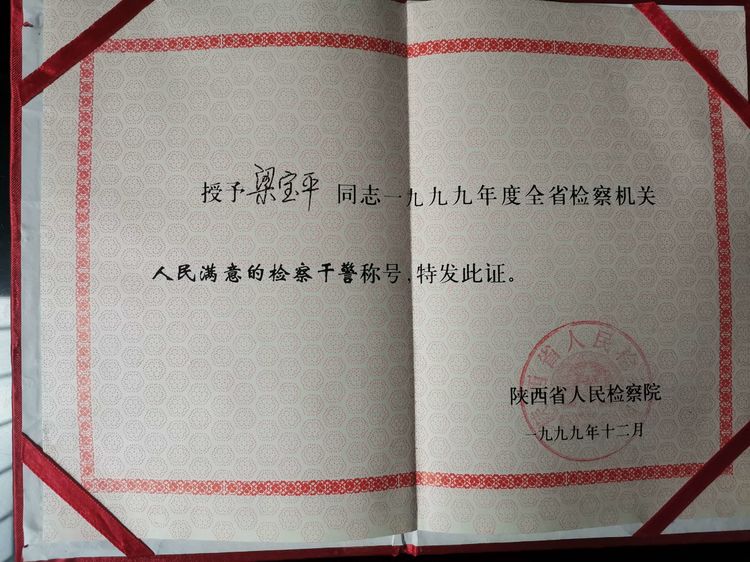 授予梁宝平同志一九九九年度全省检察机关
人民满意的检察干警称号,特发此证。
陕西省人民检察院
一九九九年十二月